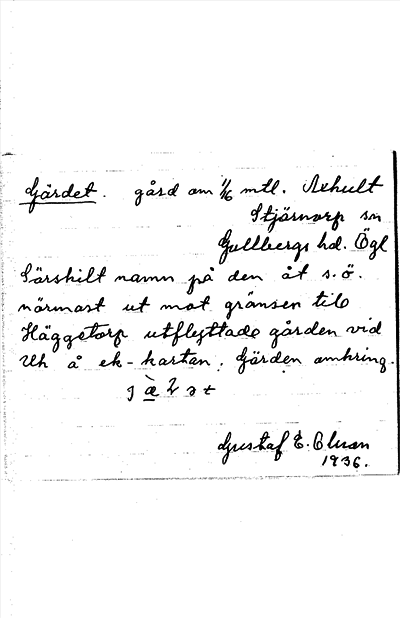 Gärdet. gård om 1/16 mtl. Axhult
Stjärnorp sn
Gullbergs hd. Ögl
Särskilt namn på den åt s.ö.
närmast ut mot gränsen till
Häggetorp utflyttade gården vid
Uh å ek-kartan. Gärden omkring.
Gustaf E. Olsson
1936.